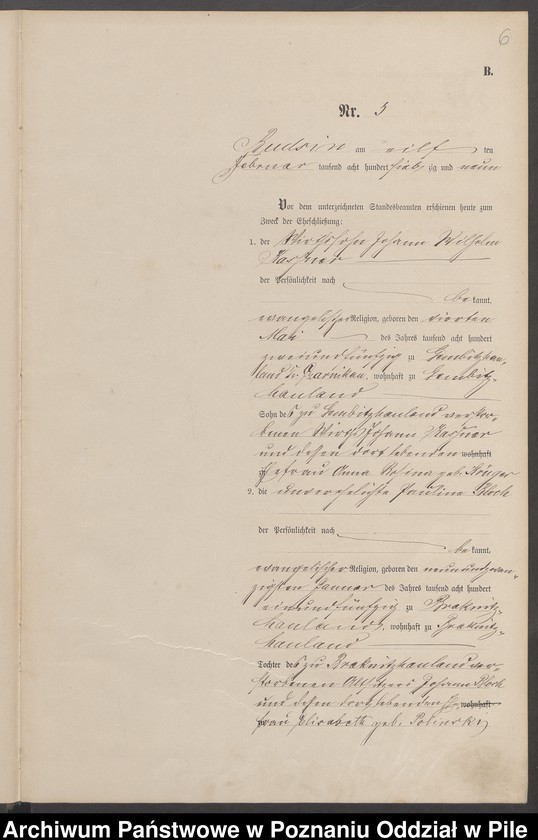 6
B.
Nr. 3
Budsin am eilf ten
Februar tausend acht hundert siebzig und neun
Vor dem unterzeichneten Standesbeamten erschienen heute zum
Zweck der Eheschließung:
1. der Wirthssohn Johann Wilhelm
der Persönlichkeit nach
bekannt,
evangelischer Religion, geboren den vierten
Mai des Jahres tausend acht hundert
zweiundfünfzig zu Gembitzhau-
land Kr. Czarnikau, wohnhaft zu Gembitz-
hauland
Sohn des zu Gembitzhauland verstor-
benen Wirths Johann
und dessen dort lebenden wohnhaft
Ehefrau Anna Rosina geb. Krüger
2. die unverehelichte Pauline Block
der Persönlichkeit nach
bekannt,
evangelischer Religion, geboren den neunundzwan-
zigsten Januar des Jahres tausend acht hundert
einundfünfzig zu
hauland, wohnhaft zu
hauland
Tochter des zu ver-
storbenen Johann Block
und dessen dort lebenden Ehe- wohnhaft
frau Elisabeth geb.
Archiwum Państwowe w Poznaniu Oddział w Pile